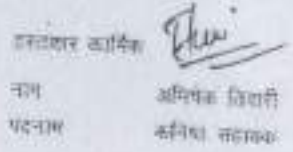 हस्ताक्षर कार्मिक
नाम अभिषेक तिवारी
पदनाम कनिष्ठ सहायक